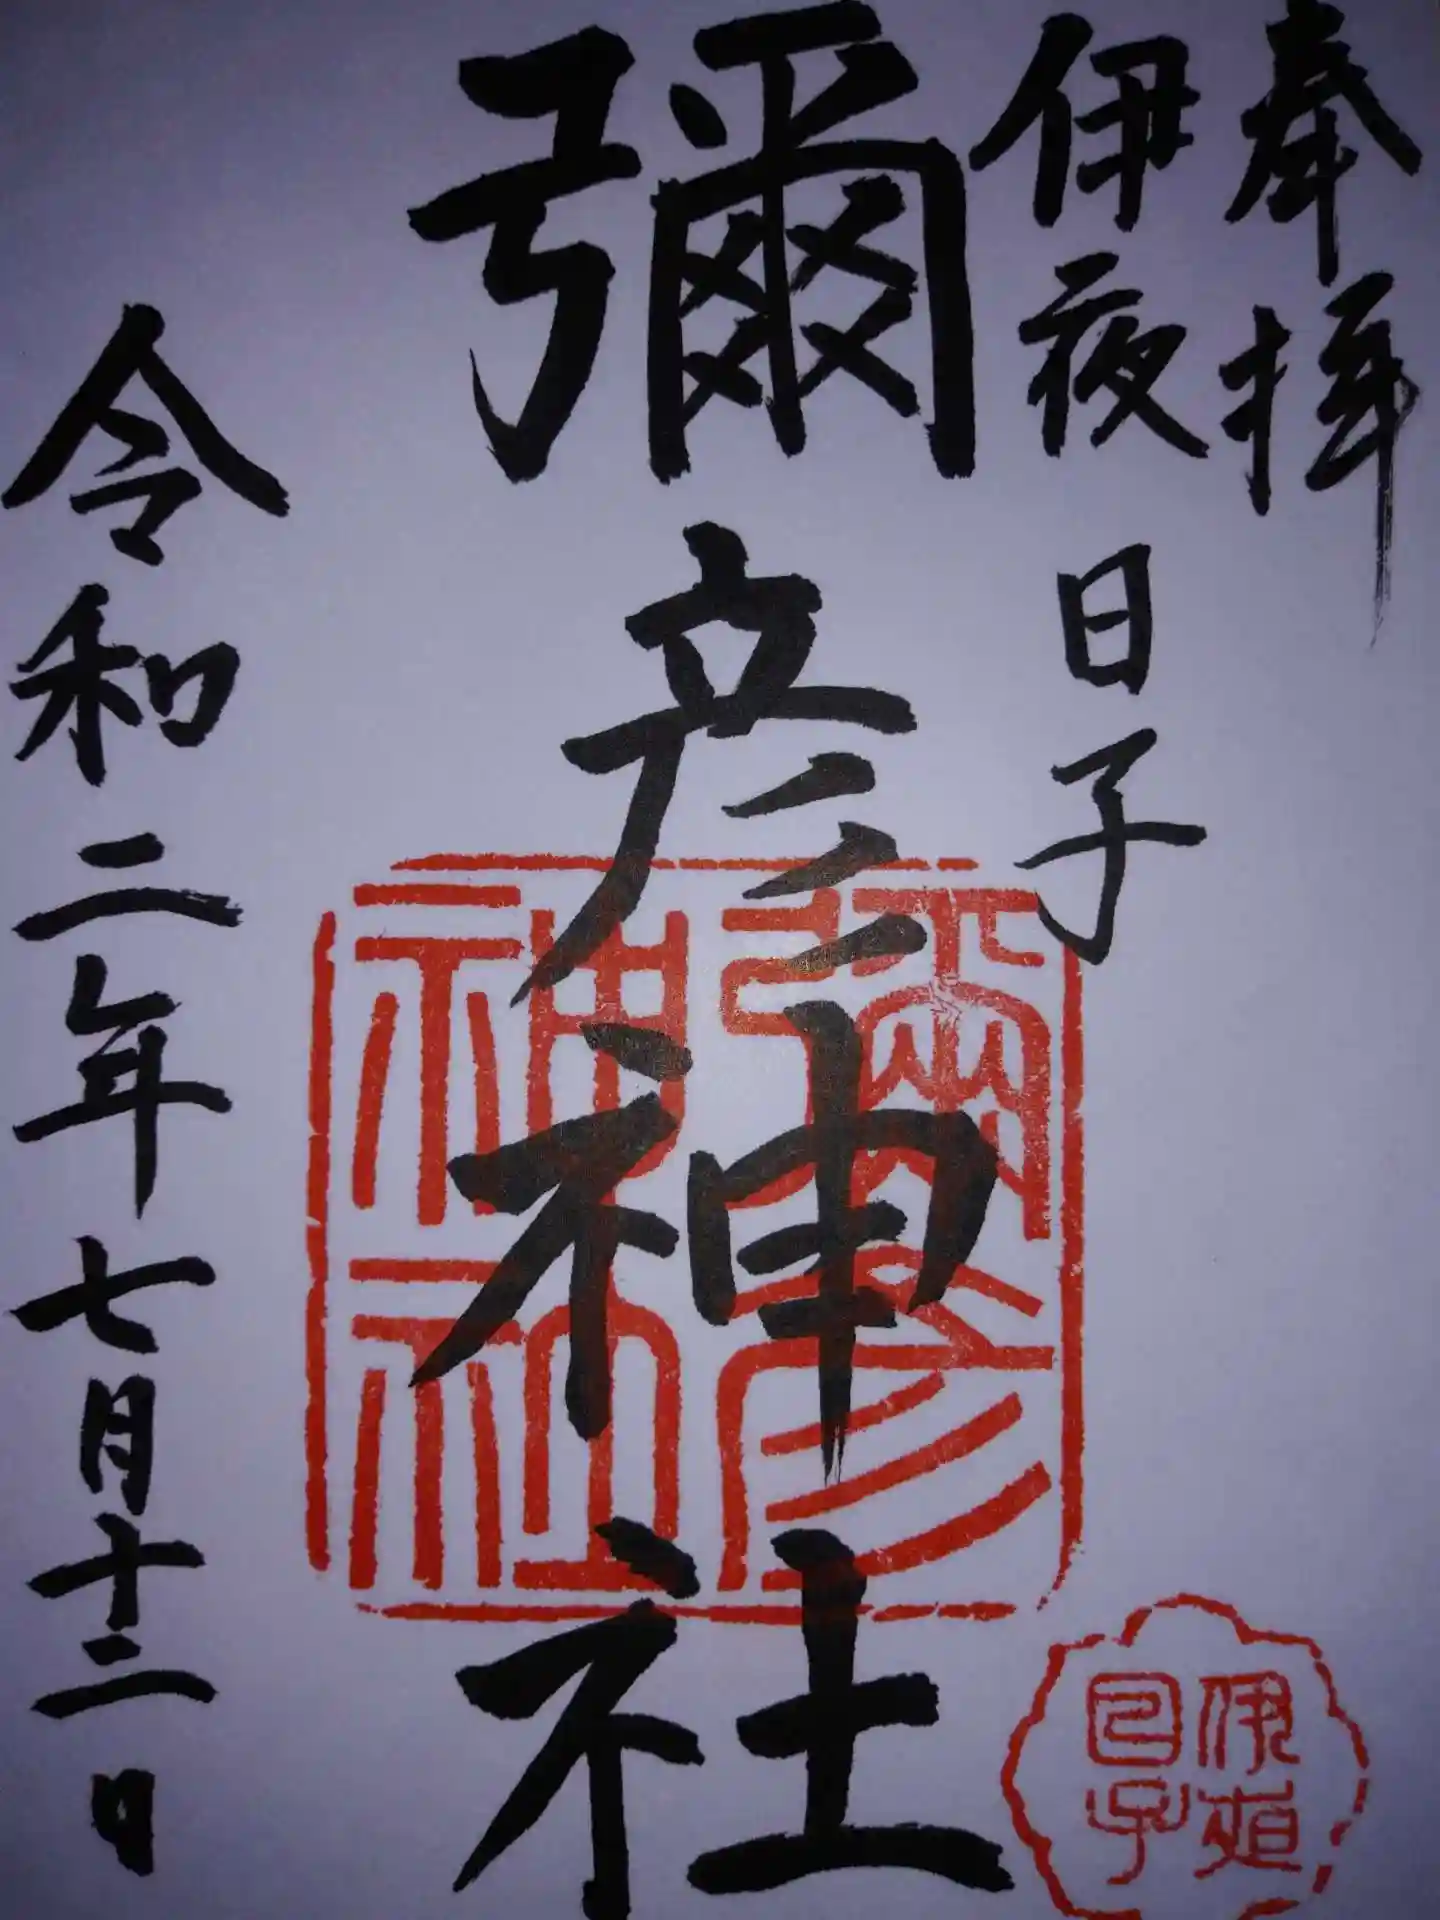 奉拝
伊夜日子
彌彦神社
令和二年七月十二日
彌彦
神社
伊夜
日子